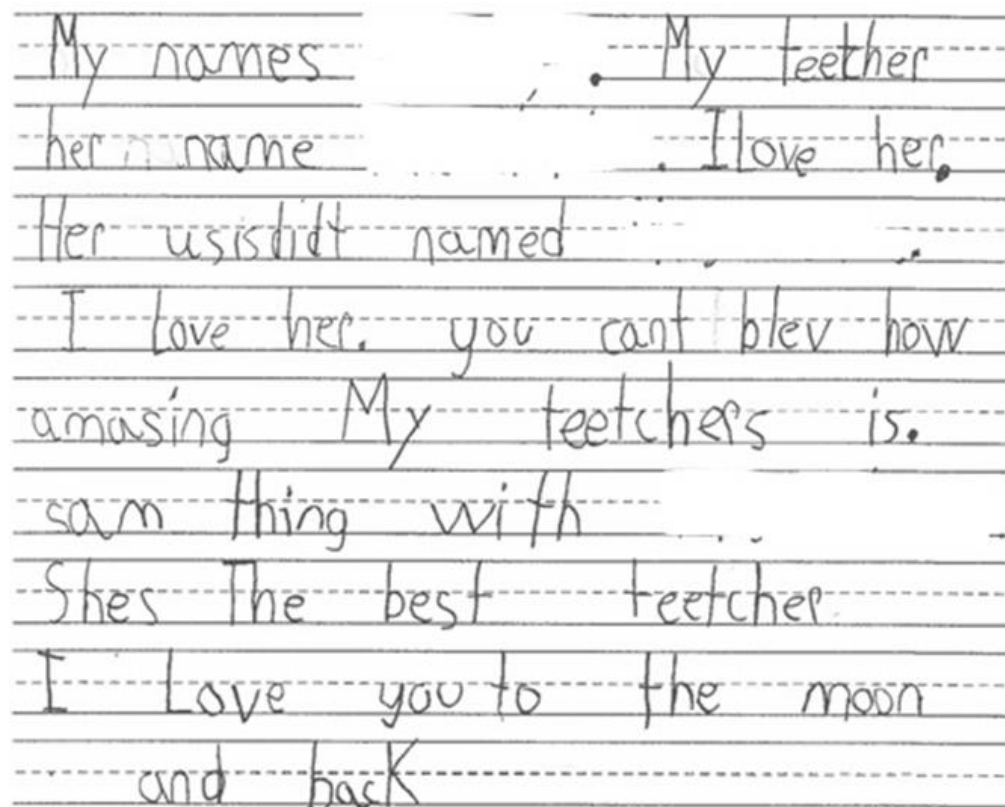 My names . My teether
her name . I love her.
Her usisdidt named
I Love her. you cant blev how
amasing My teetchers is.
sam thing with
Shes The best teetcher
I Love you to the moon
and back